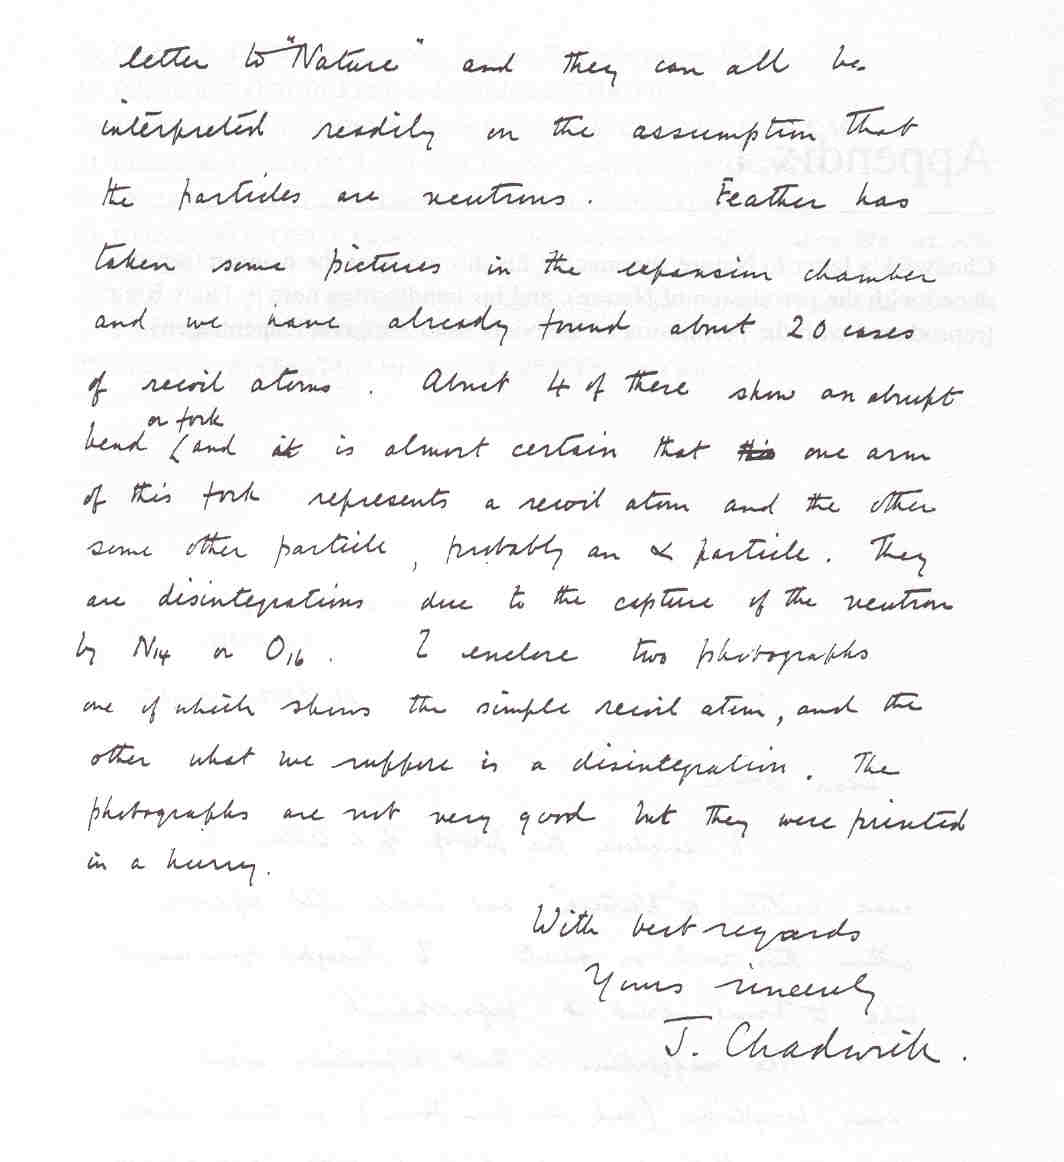 letter to "Nature" and they can all be
interpreted readily on the assumption that
the particles are neutrons. Feather has
taken some pictures in the expansion chamber
and we have already found about 20 cases
of recoil atoms. About 4 of these show an abrupt
or fork
bend (and it is almost certain that this one arm
of this fork represents a recoil atom and the other
some other particle, probably an α particle. They
are disintegrations due to the capture of the neutron
by N14 or O16. I enclose two photographs
one of which shows the simple recoil atom, and the
other what we suppose is a disintegration. The
photographs are not very good but they were printed
in a hurry.
With best regards
Yours sincerely
J. Chadwick.